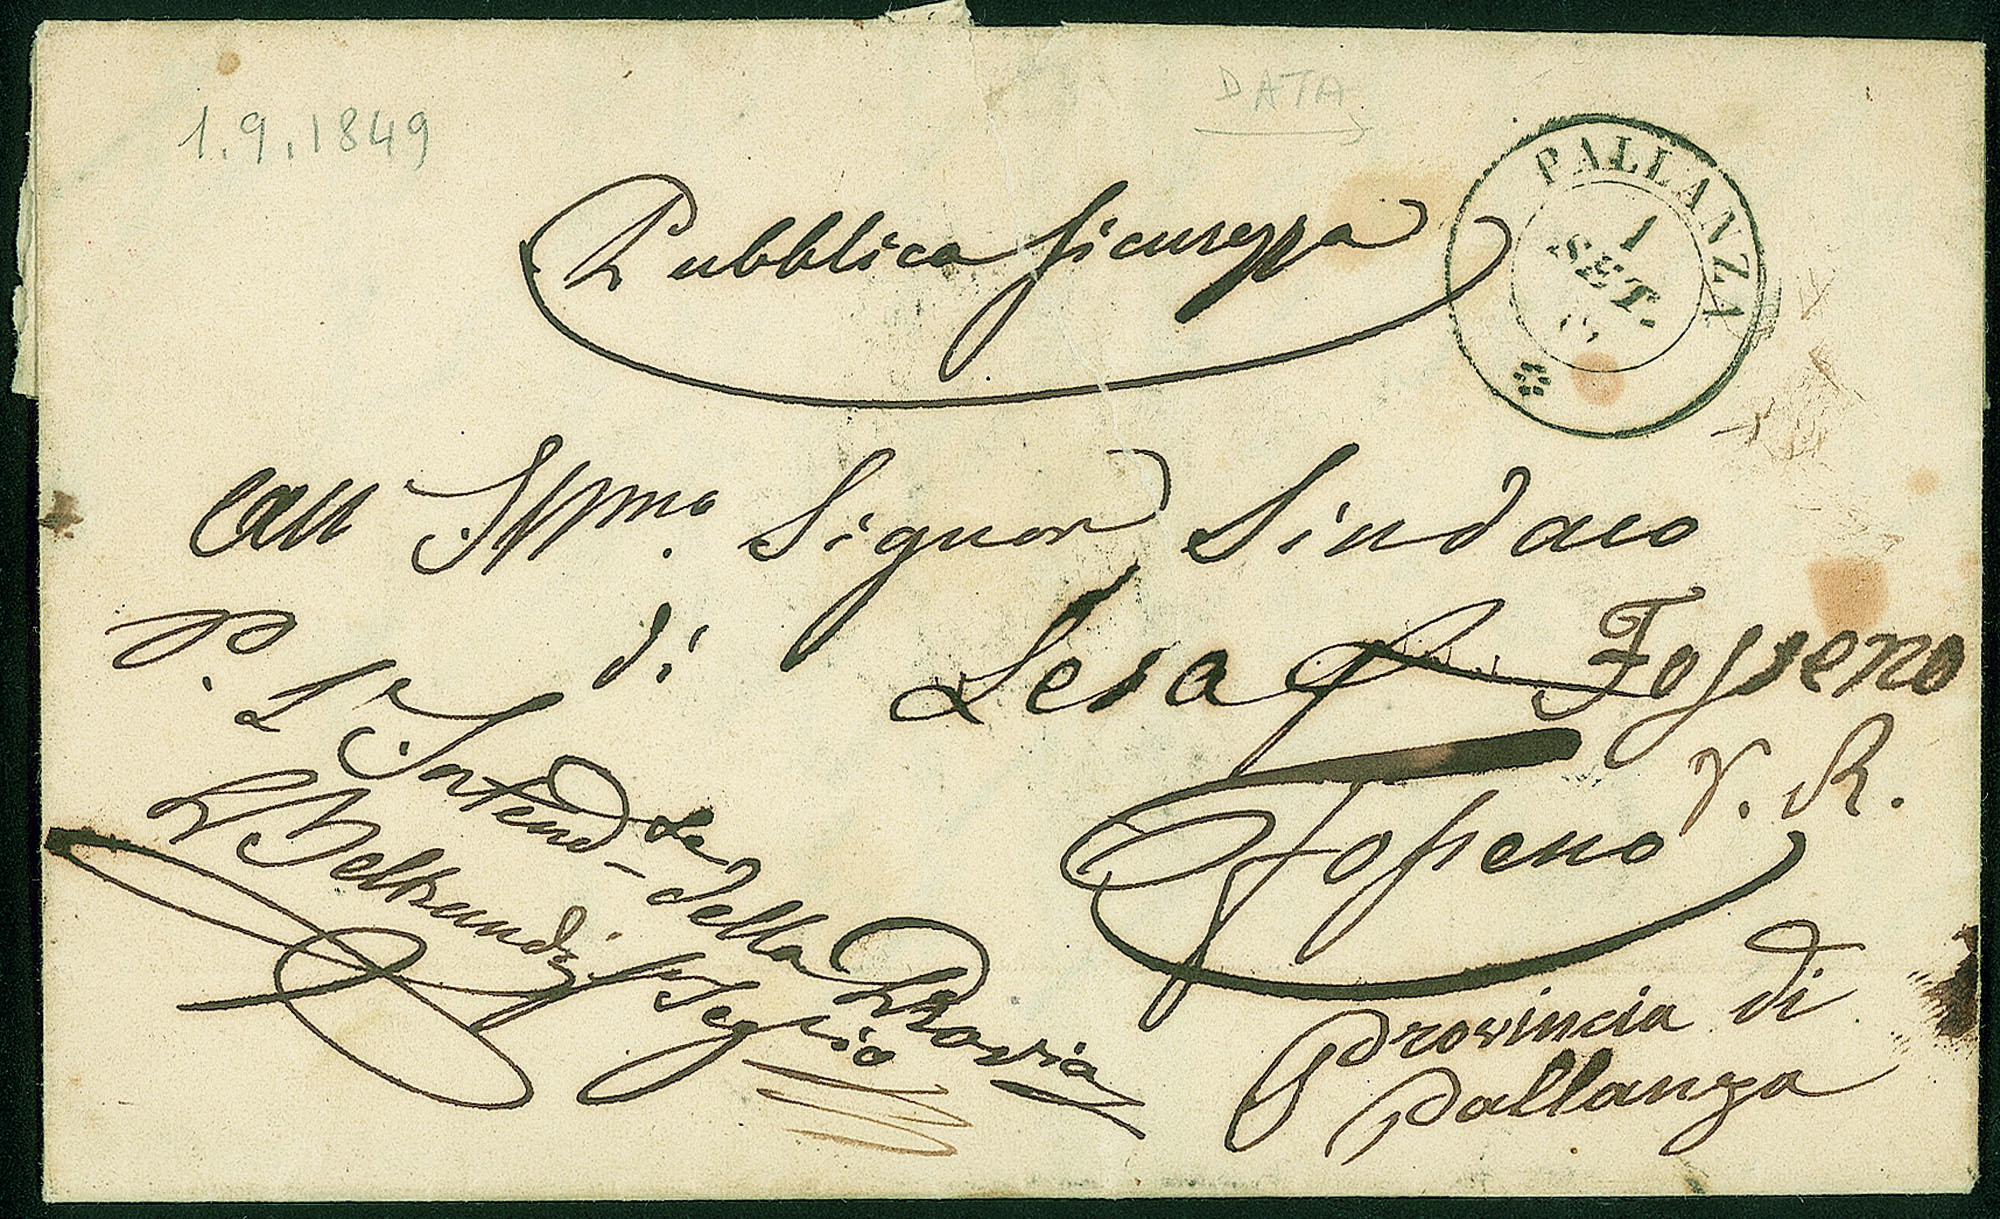 1.9.1849
DATA
PALLANZA
1
SET.
Pubblica Sicurezza
All' Illmo. Signor Sindaco
di Lesa Fosseno
V. R.
Fosseno
Provincia di
Pallanza
P. L'Intendte
della Provia
Beltrandi Segrio